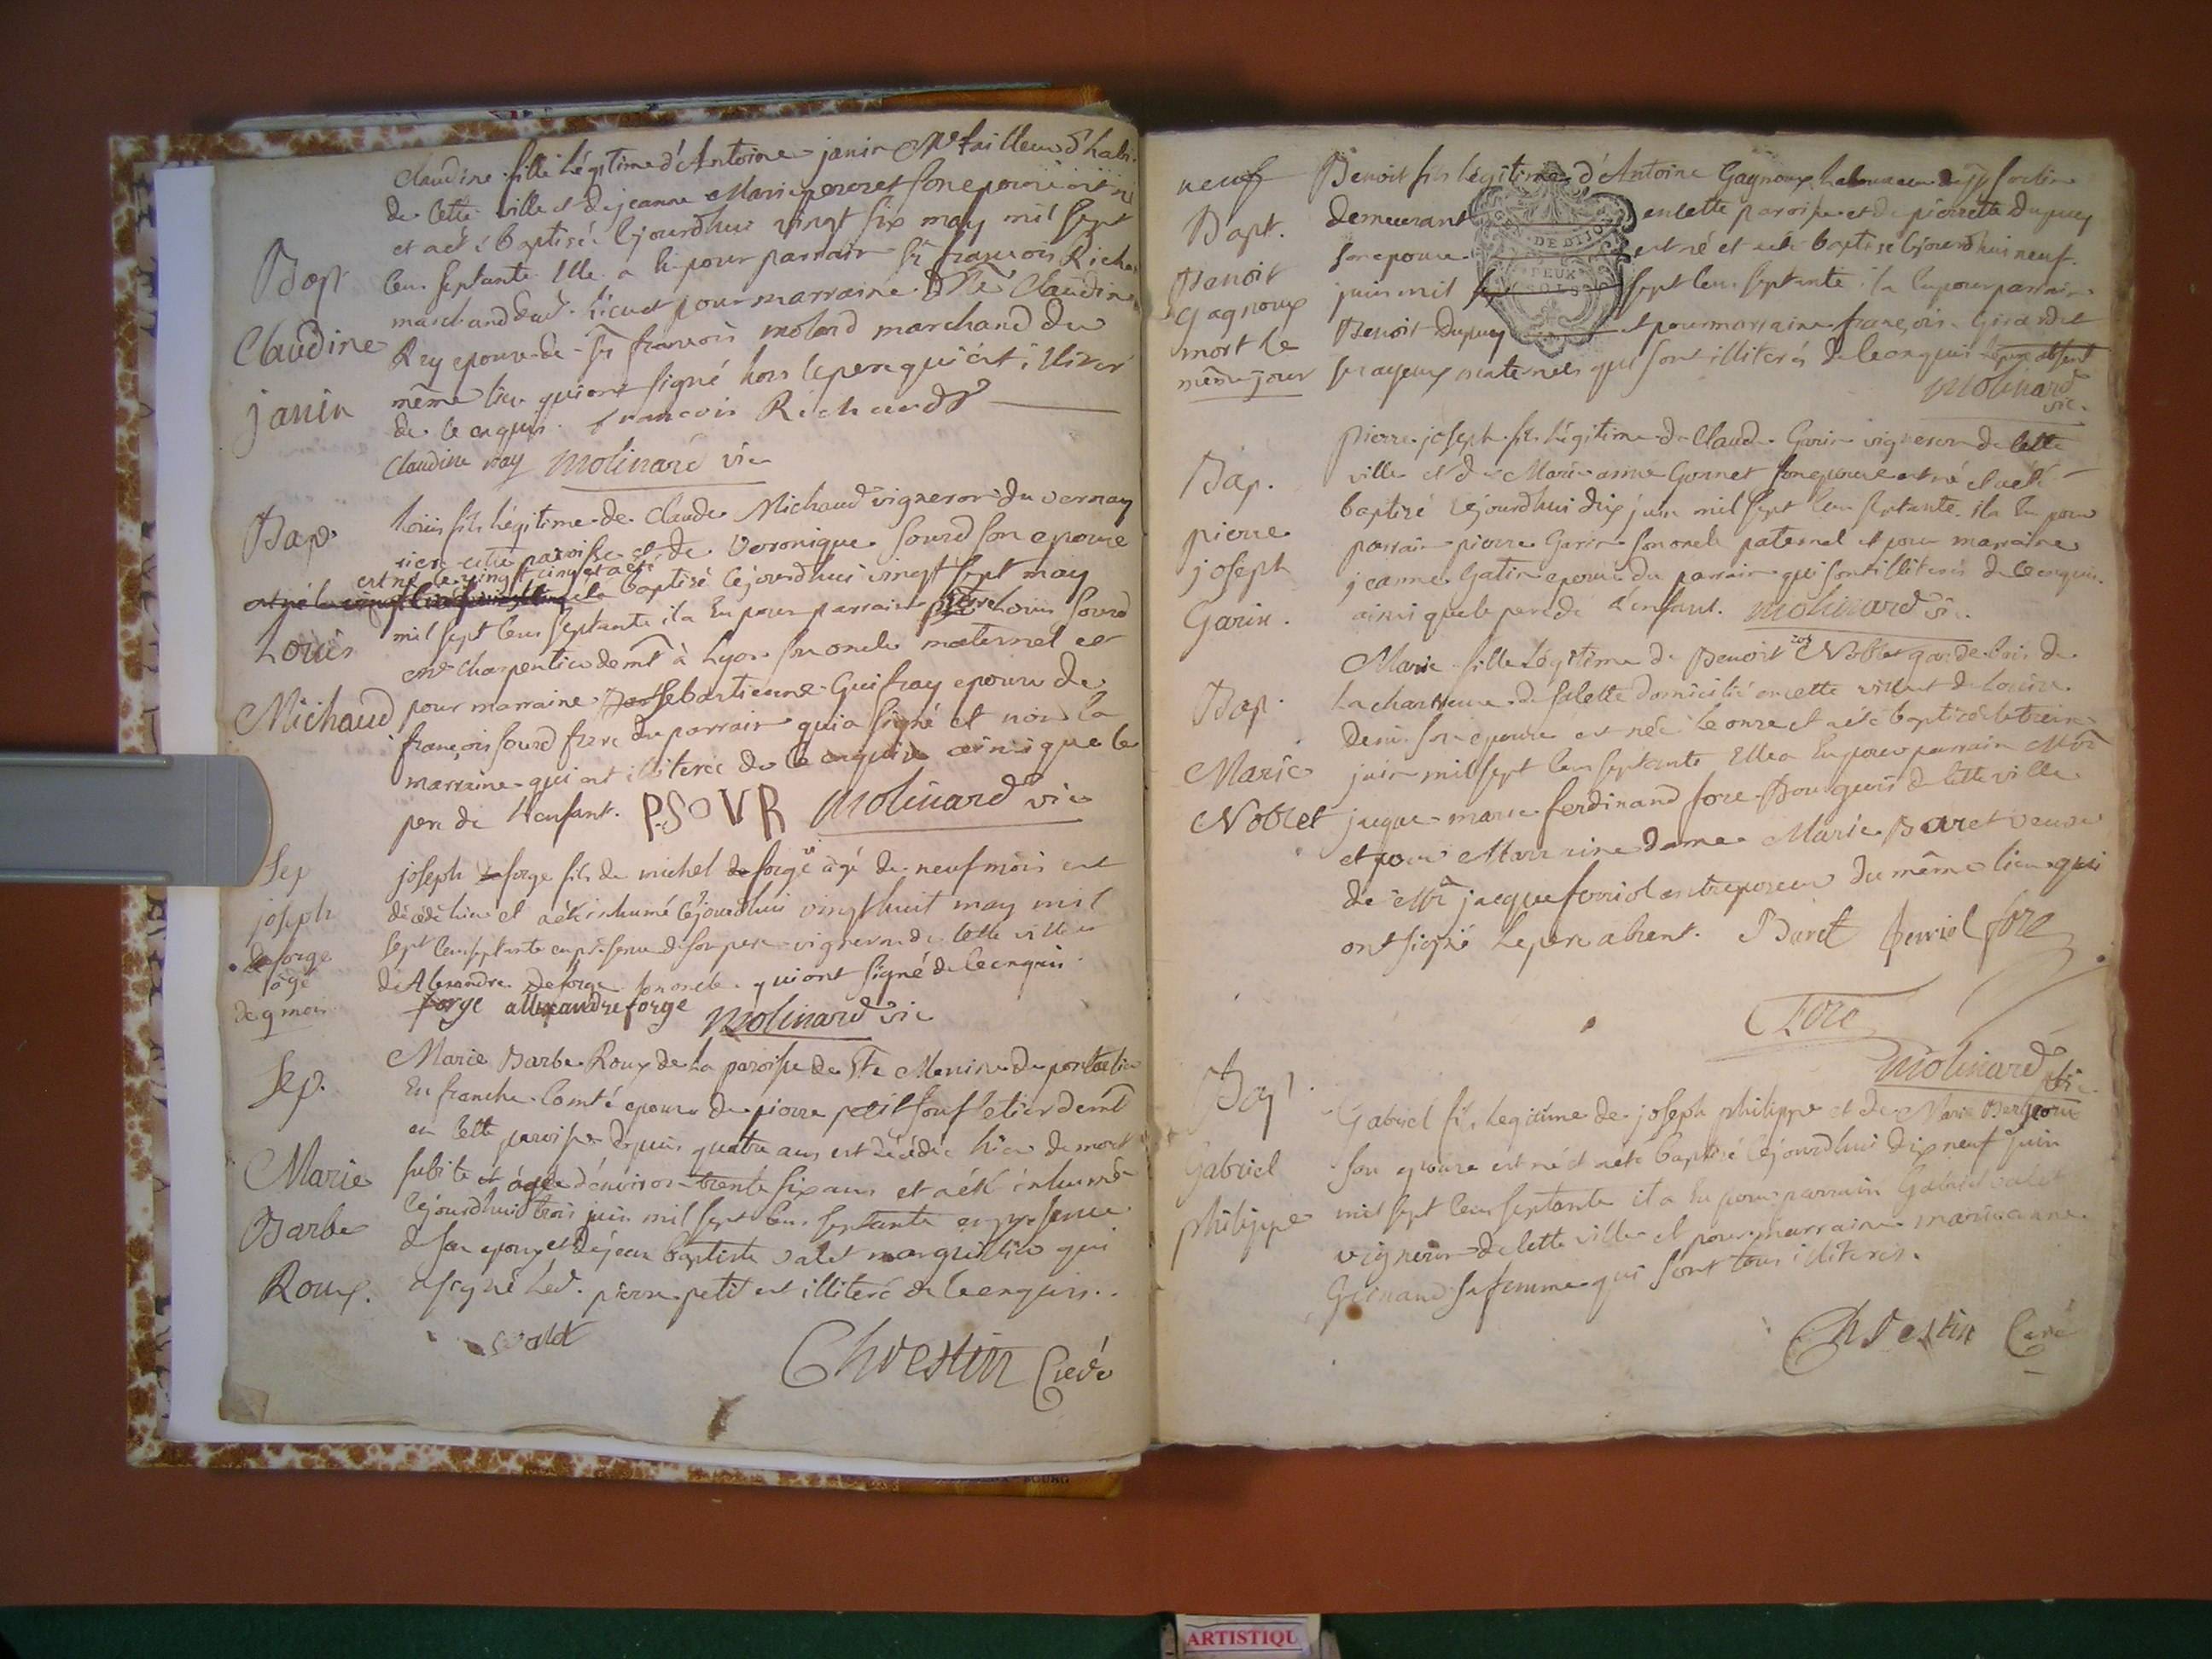 Claudine fille Légitime d'Antoine janin Me tailleur d'habi.
de Cette ville et de jeanne Marie peroret son epouse est né
et a eté baptisée Cejourdhuy vingt six may mil sept
Cens septante Elle a Eu pour parrain Sr francois Richa
marchand et pour marraine Dlle Claudine
Rey epouse de Sr francois molard marchand du
même lieu qui ont signé hors le pere qui est illiteré
de ce enquis. francois Richard
Claudine ray Molinard vic
Bapt
Claudine
janin
Loüis fils Légitime de Claude Michaud vigneron du vernay
riere cette paroisse et de Veronique Sourd son epouse
est né le vingt cinq et a eté
baptisé Cejourdhui vingt sept may
mil sept Cens septante il a Eu pour parrain Louis Sourd
Me charpentier demt à Lyon son oncle maternel et
pour marraine Sebastienne Guifray epouse de
françois Sourd frere du parrain qui a signé et non la
marraine qui est illiterée de ce enquise ainsi que le
pere de L'enfant. P.SOVR Molinard vic
Bap.
Loüis
Michaud
joseph forge fils de michel forge agé de neuf mois est
décédé hier et a eté inhumé Cejourdhui vingt huit may mil
sept Cens septante en presence de son pere vigneron de Cette ville et
de Alexandre Deforge son oncle qui ont signé de ce enquis
forge allexandre forge Molinard vic
Sep
joseph
de forge
agé
de 9 mois
Marie Barbe Roux de La paroisse de Ste Menine de pontarlier
En franche Comté epouse de pierre petit soufletier demt
en Cette paroisse depuis quatre ans est décédée hier de mort
subite et agée d'environ trente six ans et a eté inhumée
Cejourdhui trois juin mil sept Cens septante en presence
de son epoux et de jean baptiste valet marguillier qui
a signé Led. pierre petit est illiteré de ce enquis.
valet
Chrestin Curé
Sep.
Marie
Barbe
Roux.
neuf
Bapt.
Benoit
Gagnoux
mort le
même jour
Benoit fils légitime d'Antoine Gagnoux Laboureur
demeurant en cette paroisse et de pierrette Dupuy
son epouse est né et a eté baptisé Cejourdhui neuf
juin mil sept Cens septante il a Eu pour parrain
Benoit Dupuy et pour marraine françoise Girardet
ses ayeux maternels qui sont illiterés de ce enquis le pere absent
Molinard
vic.
GEN. DE DIJON
DEUX
SOLS
Bap.
pierre
joseph
Garin.
pierre joseph fils Légitime de Claude Garin vigneron de Cette
ville et de Marie anne Gonnet son epouse est né et a eté
baptisé Cejourdhui dix juin mil sept Cens septante il a Eu pour
parrain pierre Garin son oncle paternel et pour marraine
jeanne Gatin epouse du parrain qui sont illiterés de ce enquis
ainsi que le pere de L'enfant. Molinard vic.
Bap.
Marie
Noblet
Marie fille Légitime de Benoit Noblet garde bois de
La chartreuse de Salette domicilié en cette ville et de Louise
Denis son epouse est née le onze et a eté baptisée le treize
juin mil sept Cens septante Elle a Eu pour parrain Mr
jacque marie ferdinand fore Bourgeois de Cette ville
et pour Marraine dame Marie Baret veuve
de Mr jacque ferriol entreposeur du même lieu qui
ont signé Le pere absent. Baret ferriol fore
Fore
Molinard vic
Bapt.
Gabriel
philippe
Gabriel fils Legitime de joseph philippe et de Marie
son epouse est né et a eté baptisé Cejourdhui dix neuf juin
mil sept Cens septante il a Eu pour parrain Gabriel valet
vigneron de Cette ville et pour marraine marie anne
Guinand sa femme qui sont tous illiterés.
Chrestin Curé
ARTISTIQU